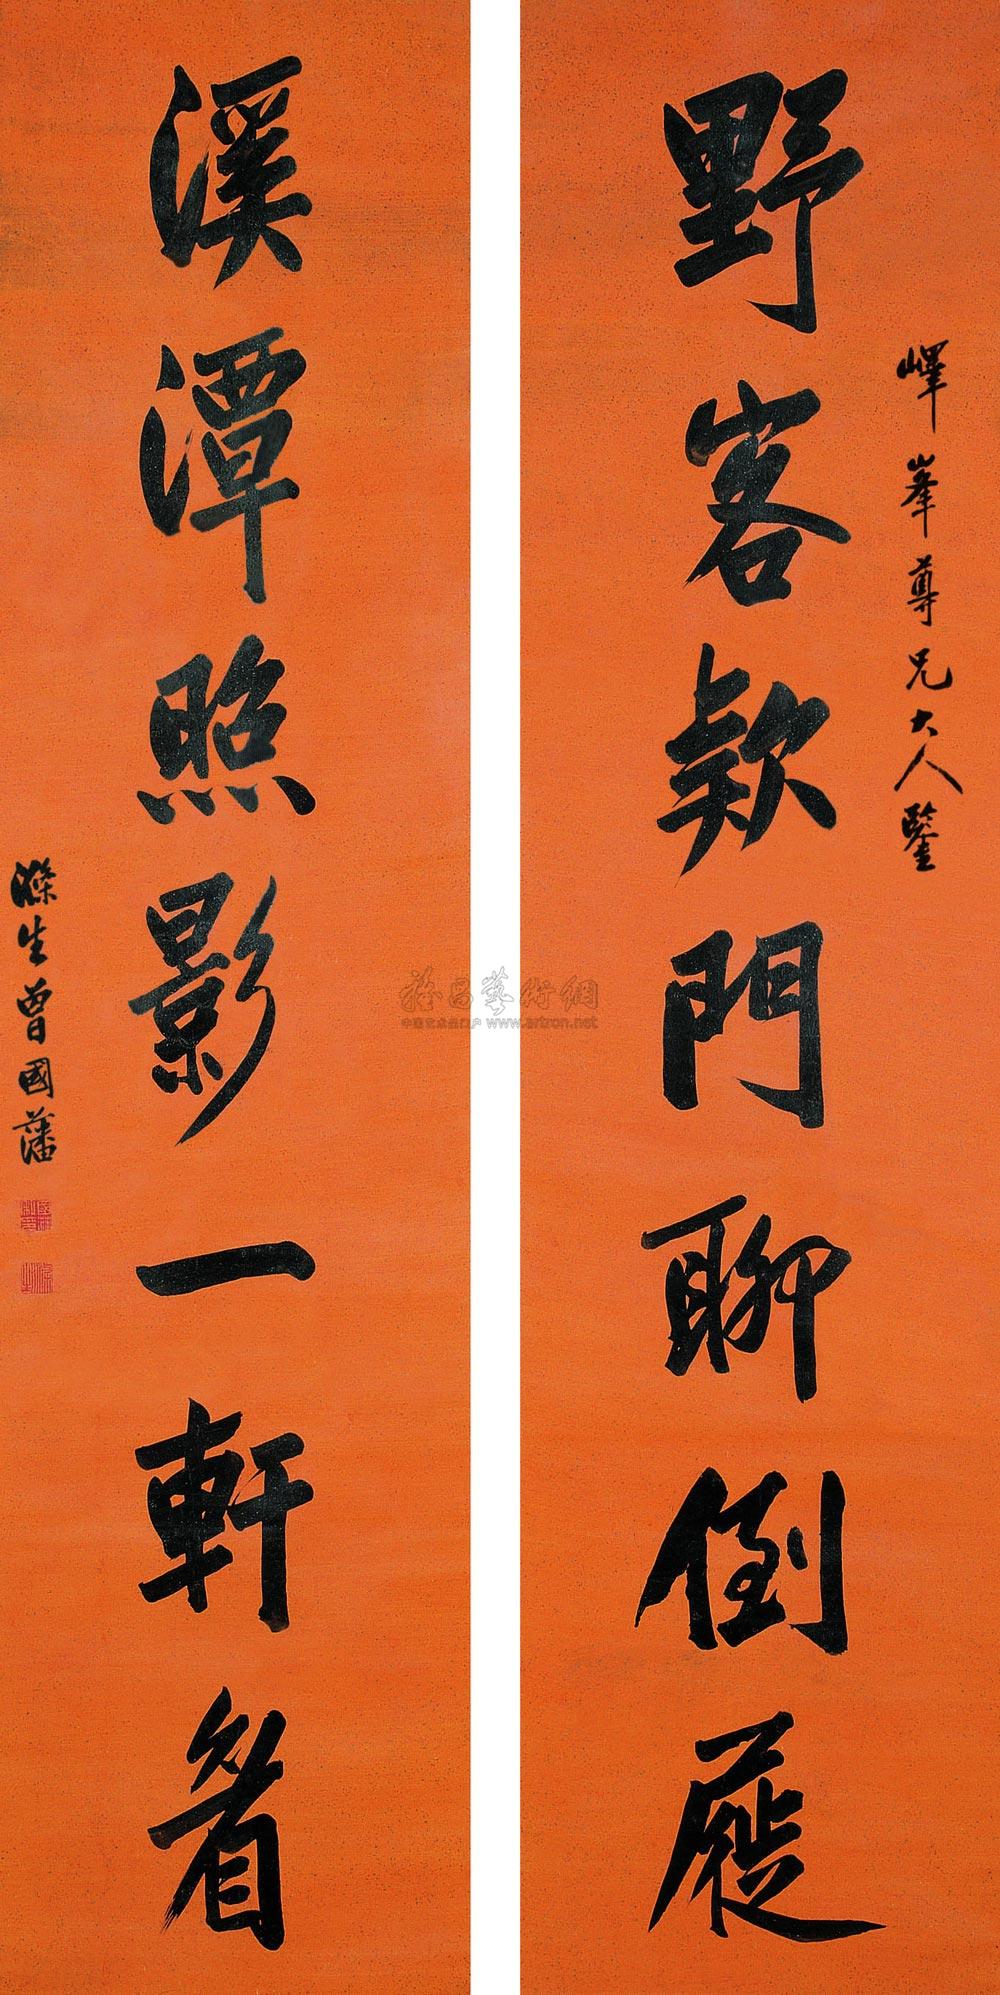 野客款門聊倒屣
嶧峯尊兄大人鑒
溪潭照影一軒眉
滌生曾國藩
雅昌藝術網
中国艺术品门户 www.artron.net